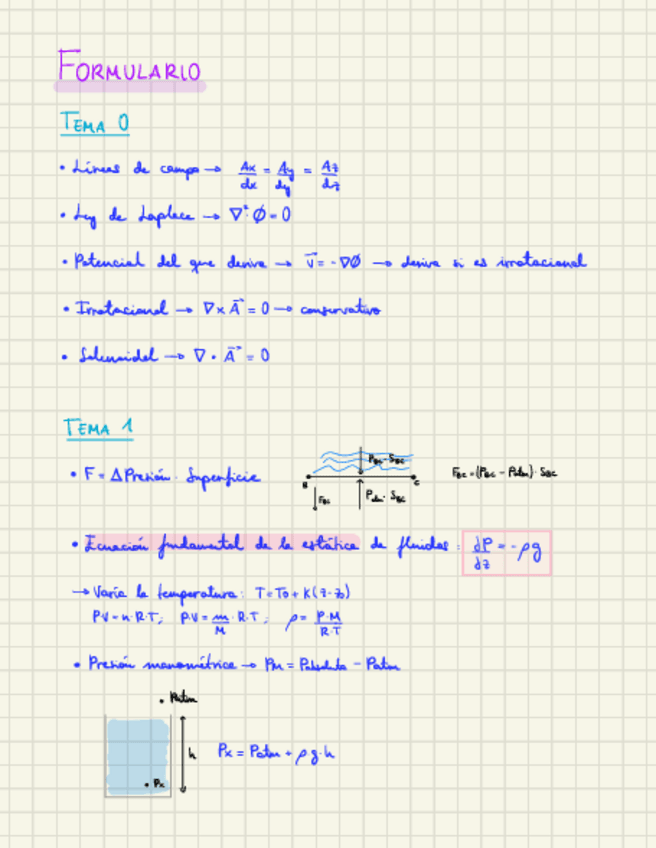 FORMULARIO
TEMA 0
• Líneas de campo → Ax/dx = Ay/dy = Az/dz
• Ley de Laplace → ∇²Ø = 0
• Potencial del que deriva → v⃗ = -∇Ø → deriva si es irrotacional
• Irrotacional → ∇ x A⃗ = 0 → conservativo
• Solenoidal → ∇ · A⃗ = 0
TEMA 1
• F = ΔPresión · Superficie
PBC · SBC
B
C
FBC
Patm · SBC
FBC = (PBC - Patm) · SBC
• Ecuación fundamental de la estática de fluidos: dP/dz = - ρg
→ Varía la temperatura: T = T0 + K(z - z0)
P·V = n·R·T; P·V = m/M · R·T; ρ = P·M/R·T
• Presión manométrica → Pm = Pabsoluta - Patm
• Patm
h
Px = Patm + ρ·g·h
• Px